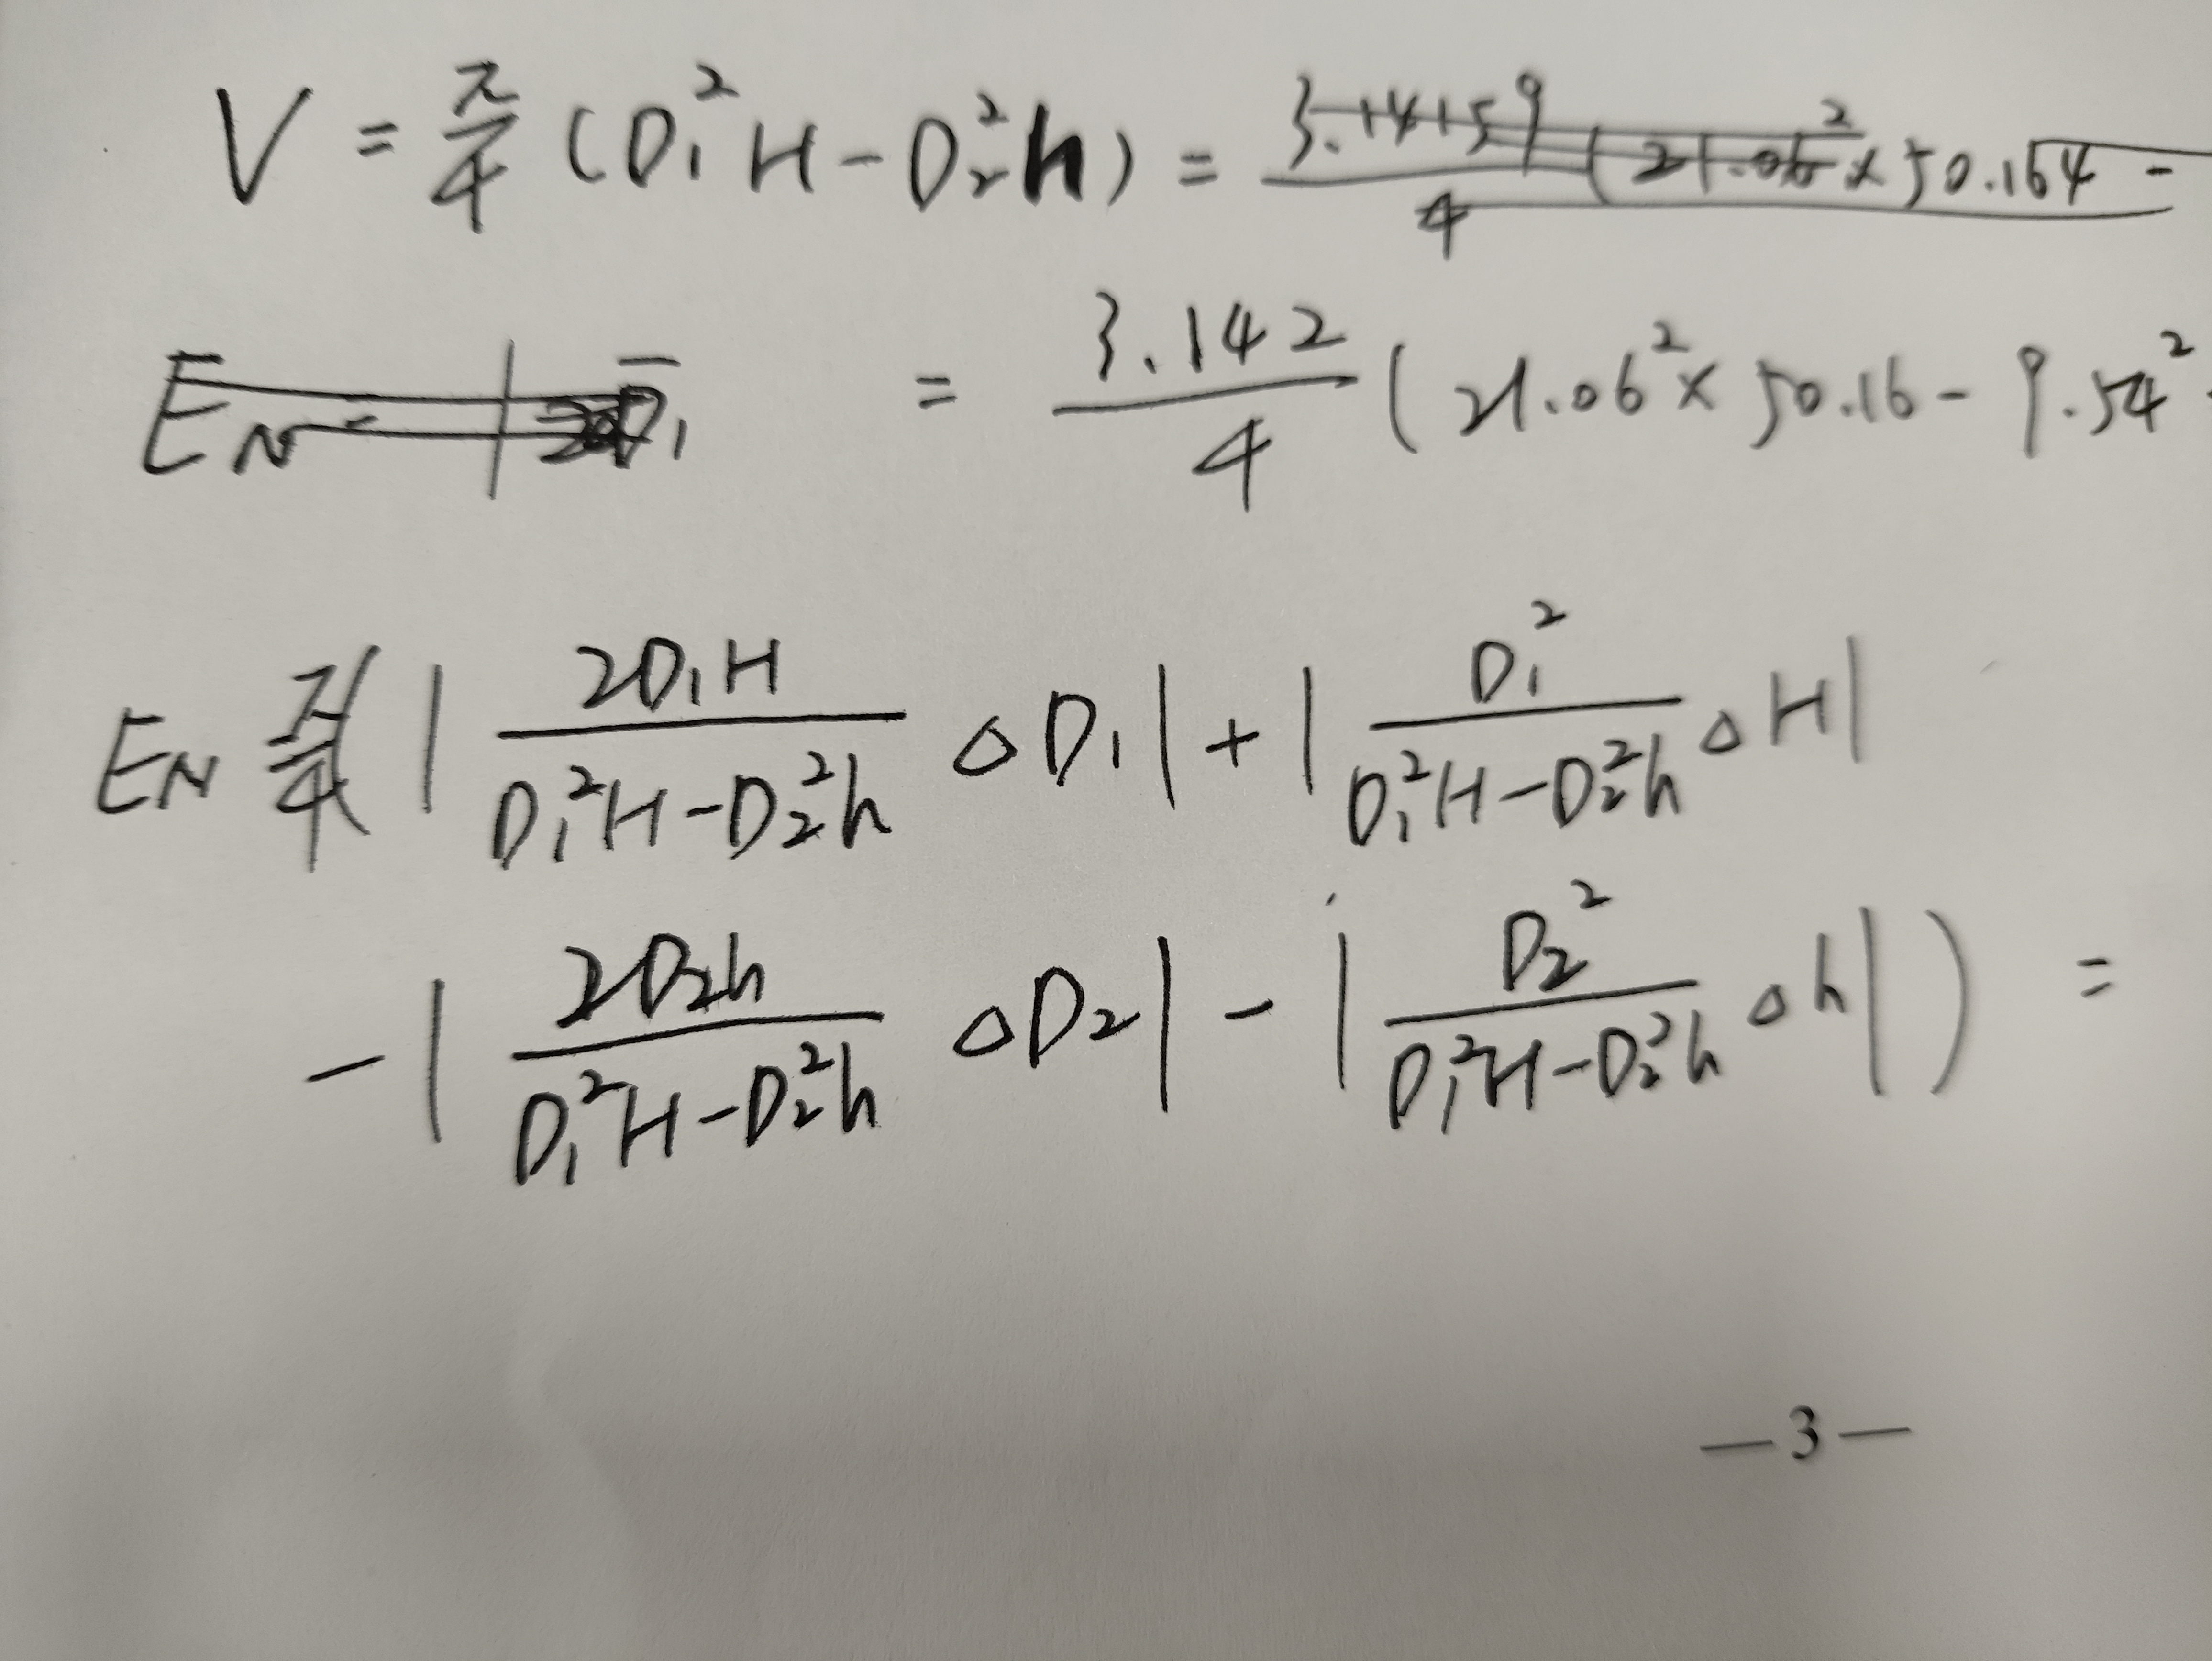 V = π/4 (D₁²H - D₂²h) = 3.14159/4 (21.06² × 50.164 -
E_N = | D̅₁
= 3.142/4 (21.06² × 50.16 - 9.54²
E_N = π/4 ( | 2D₁H/(D₁²H - D₂²h) △D₁ | + | D₁²/(D₁²H - D₂²h) △H |
- | 2D₂h/(D₁²H - D₂²h) △D₂ | - | D₂²/(D₁²H - D₂²h) △h | ) =
— 3 —